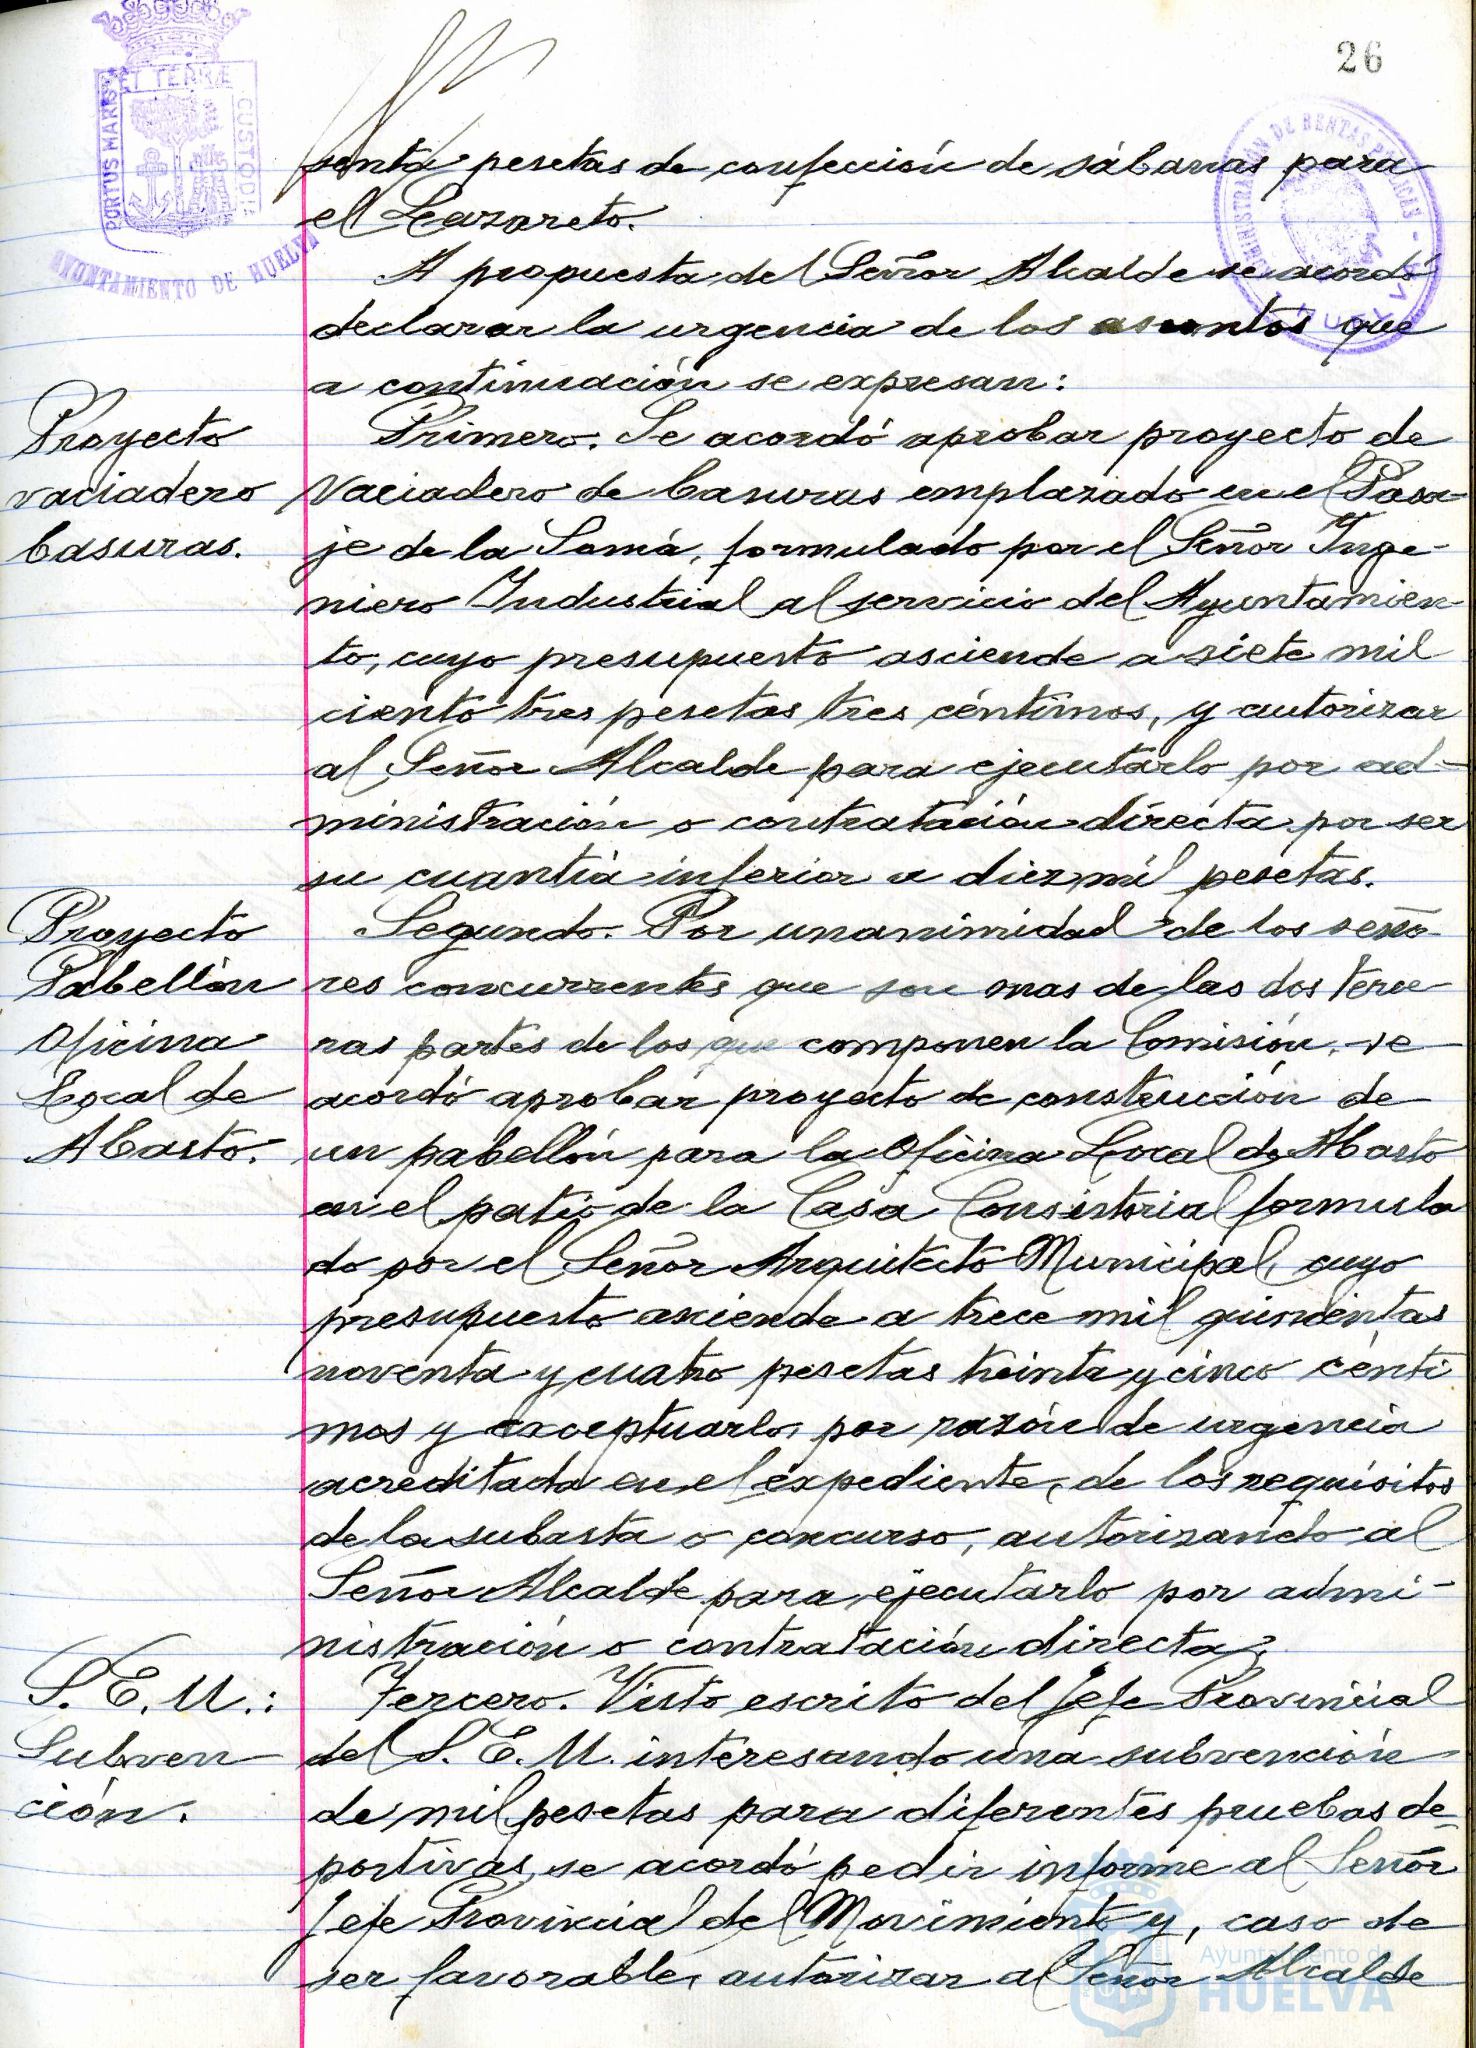 26
PORTUS MARIS ET TERRÆ CUSTODIA
AYUNTAMIENTO DE HUELVA
ADMINISTRACIÓN DE RENTAS PÚBLICAS - HUELVA
senta pesetas de confección de sábanas para
el Lazareto.
A propuesta del Señor Alcalde se acordó
declarar la urgencia de los asuntos que
a continuación se expresan:
Proyecto
vaciadero
basuras.
Primero. Se acordó aprobar proyecto de
Vaciadero de basuras emplazado en el Pasa-
je de la Somá, formulado por el Señor Inge-
niero Industrial al servicio del Ayuntamien-
to, cuyo presupuesto asciende a siete mil
ciento tres pesetas tres céntimos, y autorizar
al Señor Alcalde para ejecutarlo por ad-
ministración o contratación directa por ser
su cuantía inferior a diez mil pesetas.
Proyecto
Pabellón
Oficina
Local de
Abasto.
Segundo. Por unanimidad de los seño-
res concurrentes que son mas de las dos terce
ras partes de los que componen la Comisión, se
acordó aprobar proyecto de construcción de
un pabellón para la Oficina Local de Abasto
en el patio de la Casa Consistorial formula
do por el Señor Arquitecto Municipal, cuyo
presupuesto asciende a trece mil quinientas
noventa y cuatro pesetas treinta y cinco cénti
mos y exceptuarlo, por razón de urgencia
acreditada en el expediente, de los requisitos
de la subasta o concurso, autorizando al
Señor Alcalde para ejecutarlo por admi-
nistración o contratación directa,
S.E.U.:
Subven
ción.
Tercero. Visto escrito del Jefe Provincial
del S.E.U. interesando una subvención
de mil pesetas para diferentes pruebas de-
portivas, se acordó pedir informe al Señor
Jefe Provincial del Movimiento y, caso de
ser favorable, autorizar al Señor Alcalde
Ayuntamiento de
HUELVA